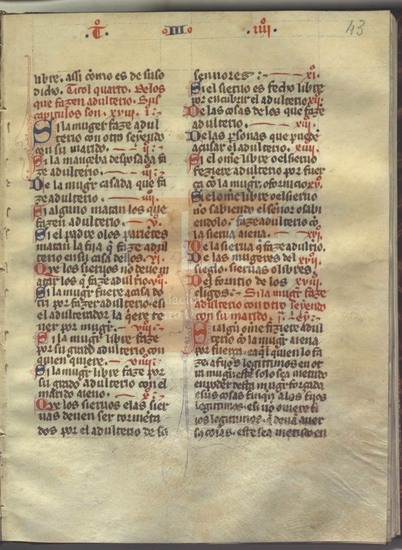 T III IIII
43
libre. assi como es de suso
dicho. Titol quarto. Delos
que fazen adulterio. Sus
capitulos son. xviii. i.
Si la muger faze adul
terio con otro seyendo
con su marido. ii.
Si la manceba desposada fa
ze adulterio. iii.
De la muger casada que fa
ze adulterio. iiii.
Si alguno matan los que
fazen adulterio. v.
Si el padre o los parientes
matan la fija que faze adul
terio en su casa dellos. vi.
Que los siervos no deven m
atar los que faze adulterio vii.
Si la muger fuere a casa do
tri por fazer adulterio. e si
el adulterador la quiere te
ner por muger. viii.
Si la muger libre faze
por su grado adulterio con
quien quiere. viiii.
Si la muger libre faze por
su grado adulterio con el
marido aieno. x.
Que los siervos e las sier
vas deven ser tormeta
dos por el adulterio de sus
sennores. xi.
Si el siervo es fecho libre
por encubrir el adulterio xii.
De las cosas de los que faze
adulterio. xiii.
De las personas que puede
acusar el adulterio. xiiii.
Si el ome libre o el siervo
feziere adulterio por fuerça
con la muger. otrosi xv.
Si el ome libre o el siervo
no sabiendo el señor o sabi
endolo. faze adulterio con
la sierva aiena. xvi.
De la sierva que faze adulterio.
De las mugeres del xvii.
sieglo. siervas o libres.
Del fornicio de los xviii.
clerigos. Si la muger faze
adulterio con otro seyendo
con su marido. Ley.
Si algun ome fiziere adul
terio con la muger aiena
por fuerça. aquel quien lo fa
ze. a fijos legitimos en otra
muger este solo sea metido
en poder desta muger forçada
e sus cosas finquen a los fijos
legitimos. e si no oviere fi
ios legitimos. que devan aver
sus cosas. este sea metido en